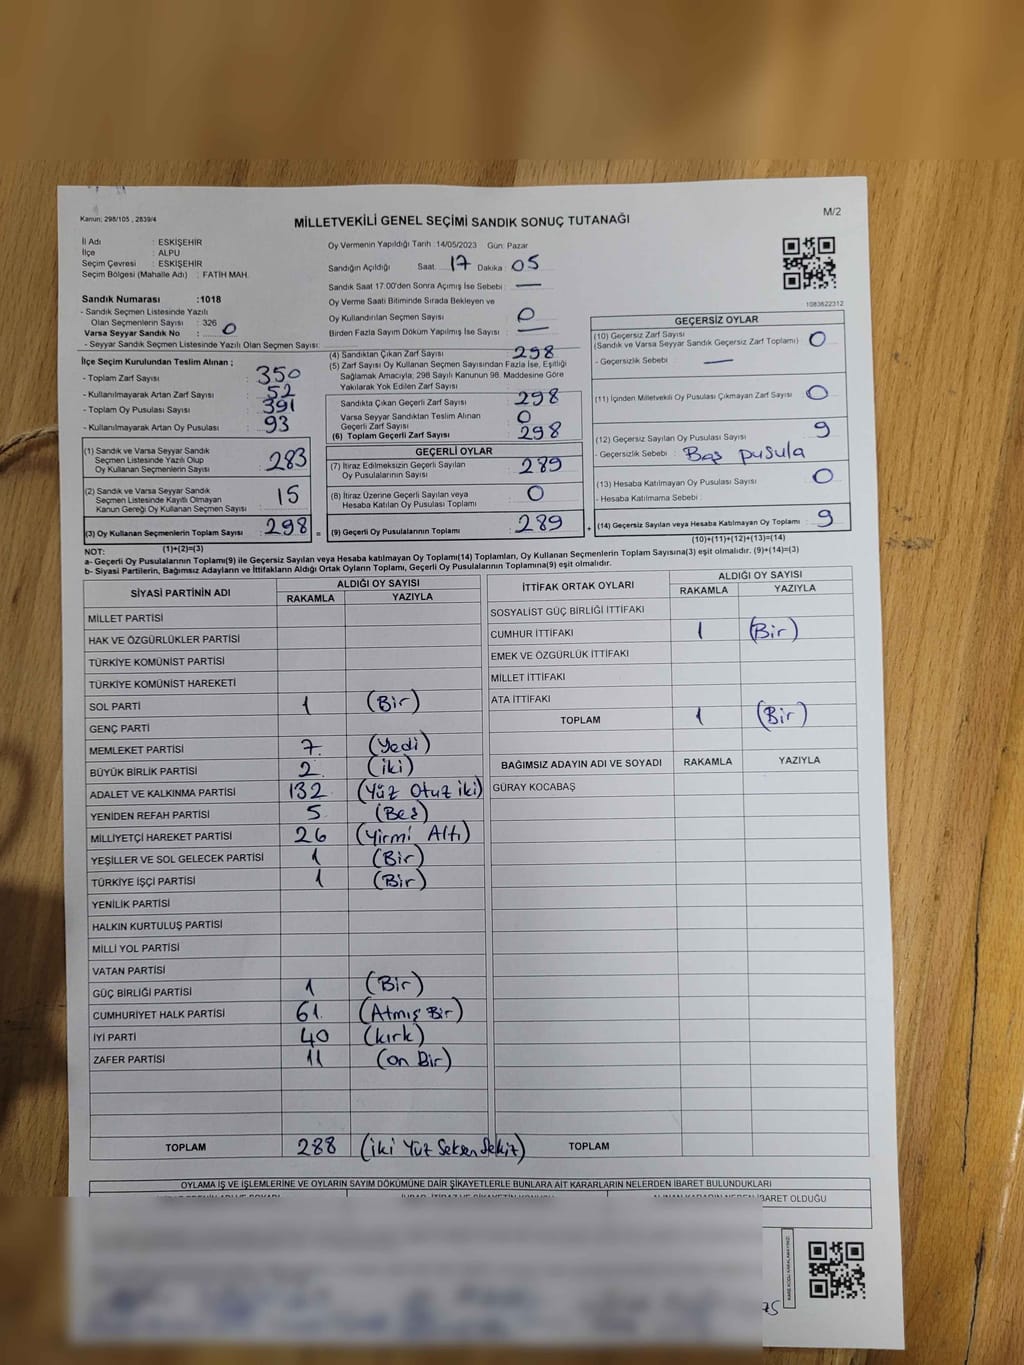 Kanun: 298/105 , 2839/4
MİLLETVEKİLİ GENEL SEÇİMİ SANDIK SONUÇ TUTANAĞI
M/2
İl Adı : ESKİŞEHİR
İlçe : ALPU
Seçim Çevresi : ESKİŞEHİR
Seçim Bölgesi (Mahalle Adı) : FATİH MAH.
Sandık Numarası :1018
- Sandık Seçmen Listesinde Yazılı
Olan Seçmenlerin Sayısı : 326
Varsa Seyyar Sandık No : 0
- Seyyar Sandık Seçmen Listesinde Yazılı Olan Seçmen Sayısı:
Oy Vermenin Yapıldığı Tarih :14/05/2023 Gün: Pazar
Sandığın Açıldığı Saat: 17 Dakika : 05
Sandık Saat 17:00'den Sonra Açımış İse Sebebi : —
Oy Verme Saati Bitiminde Sırada Bekleyen ve
Oy Kullandırılan Seçmen Sayısı : 0
Birden Fazla Sayım Döküm Yapılmış İse Sayısı : —
1083822312
İlçe Seçim Kurulundan Teslim Alınan ;
- Toplam Zarf Sayısı : 350
- Kullanılmayarak Artan Zarf Sayısı : 52
- Toplam Oy Pusulası Sayısı : 391
- Kullanılmayarak Artan Oy Pusulası : 93
(1) Sandık ve Varsa Seyyar Sandık
Seçmen Listesinde Yazılı Olup
Oy Kullanan Seçmenlerin Sayısı : 283
(2) Sandık ve Varsa Seyyar Sandık
Seçmen Listesinde Kayıtlı Olmayan
Kanun Gereği Oy Kullanan Seçmen Sayısı : 15
(3) Oy Kullanan Seçmenlerin Toplam Sayısı : 298
(1)+(2)=(3)
(4) Sandıktan Çıkan Zarf Sayısı : 298
(5) Zarf Sayısı Oy Kullanan Seçmen Sayısından Fazla İse, Eşitliği
Sağlamak Amacıyla, 298 Sayılı Kanunun 98. Maddesine Göre
Yakılarak Yok Edilen Zarf Sayısı
Sandıkta Çıkan Geçerli Zarf Sayısı : 298
Varsa Seyyar Sandıktan Teslim Alınan
Geçerli Zarf Sayısı : 0
(6) Toplam Geçerli Zarf Sayısı : 298
GEÇERLİ OYLAR
(7) İtiraz Edilmeksizin Geçerli Sayılan
Oy Pusulalarının Sayısı : 289
(8) İtiraz Üzerine Geçerli Sayılan veya
Hesaba Katılan Oy Pusulası Toplamı : 0
= (9) Geçerli Oy Pusulalarının Toplamı : 289
GEÇERSİZ OYLAR
(10) Geçersiz Zarf Sayısı
(Sandık ve Varsa Seyyar Sandık Geçersiz Zarf Toplamı) : 0
- Geçersizlik Sebebi : —
(11) İçinden Milletvekili Oy Pusulası Çıkmayan Zarf Sayısı : 0
(12) Geçersiz Sayılan Oy Pusulası Sayısı : 9
- Geçersizlik Sebebi : Boş pusula
(13) Hesaba Katılmayan Oy Pusulası Sayısı : 0
- Hesaba Katılmama Sebebi :
+ (14) Geçersiz Sayılan veya Hesaba Katılmayan Oy Toplamı : 9
(10)+(11)+(12)+(13)=(14)
NOT:
a- Geçerli Oy Pusulalarının Toplamı(9) ile Geçersiz Sayılan veya Hesaba katılmayan Oy Toplamı(14) Toplamları, Oy Kullanan Seçmenlerin Toplam Sayısına(3) eşit olmalıdır. (9)+(14)=(3)
b- Siyasi Partilerin, Bağımsız Adayların ve İttifakların Aldığı Ortak Oyların Toplamı, Geçerli Oy Pusulalarının Toplamına(9) eşit olmalıdır.
SİYASİ PARTİNİN ADI ALDIĞI OY SAYISI
RAKAMLA YAZIYLA
MİLLET PARTİSİ
HAK VE ÖZGÜRLÜKLER PARTİSİ
TÜRKİYE KOMÜNİST PARTİSİ
TÜRKİYE KOMÜNİST HAREKETİ
SOL PARTİ 1 (Bir)
GENÇ PARTİ
MEMLEKET PARTİSİ 7 (Yedi)
BÜYÜK BİRLİK PARTİSİ 2 (iki)
ADALET VE KALKINMA PARTİSİ 132 (Yüz Otuz iki)
YENİDEN REFAH PARTİSİ 5 (Beş)
MİLLİYETÇİ HAREKET PARTİSİ 26 (Yirmi Altı)
YEŞİLLER VE SOL GELECEK PARTİSİ 1 (Bir)
TÜRKİYE İŞÇİ PARTİSİ 1 (Bir)
YENİLİK PARTİSİ
HALKIN KURTULUŞ PARTİSİ
MİLLİ YOL PARTİSİ
VATAN PARTİSİ
GÜÇ BİRLİĞİ PARTİSİ 1 (Bir)
CUMHURİYET HALK PARTİSİ 61 (Atmış Bir)
İYİ PARTİ 40 (kırk)
ZAFER PARTİSİ 11 (on Bir)
TOPLAM 288 (iki Yüz Seksen Sekiz)
İTTİFAK ORTAK OYLARI ALDIĞI OY SAYISI
RAKAMLA YAZIYLA
SOSYALİST GÜÇ BİRLİĞİ İTTİFAKI
CUMHUR İTTİFAKI 1 (Bir)
EMEK VE ÖZGÜRLÜK İTTİFAKI
MİLLET İTTİFAKI
ATA İTTİFAKI
TOPLAM 1 (Bir)
BAĞIMSIZ ADAYIN ADI VE SOYADI RAKAMLA YAZIYLA
GÜRAY KOCABAŞ
TOPLAM
OYLAMA İŞ VE İŞLEMLERİNE VE OYLARIN SAYIM DÖKÜMÜNE DAİR ŞİKAYETLERLE BUNLARA AİT KARARLARIN NELERDEN İBARET BULUNDUKLARI
ALINAN KARARIN NEDEN İBARET OLDUĞU
75